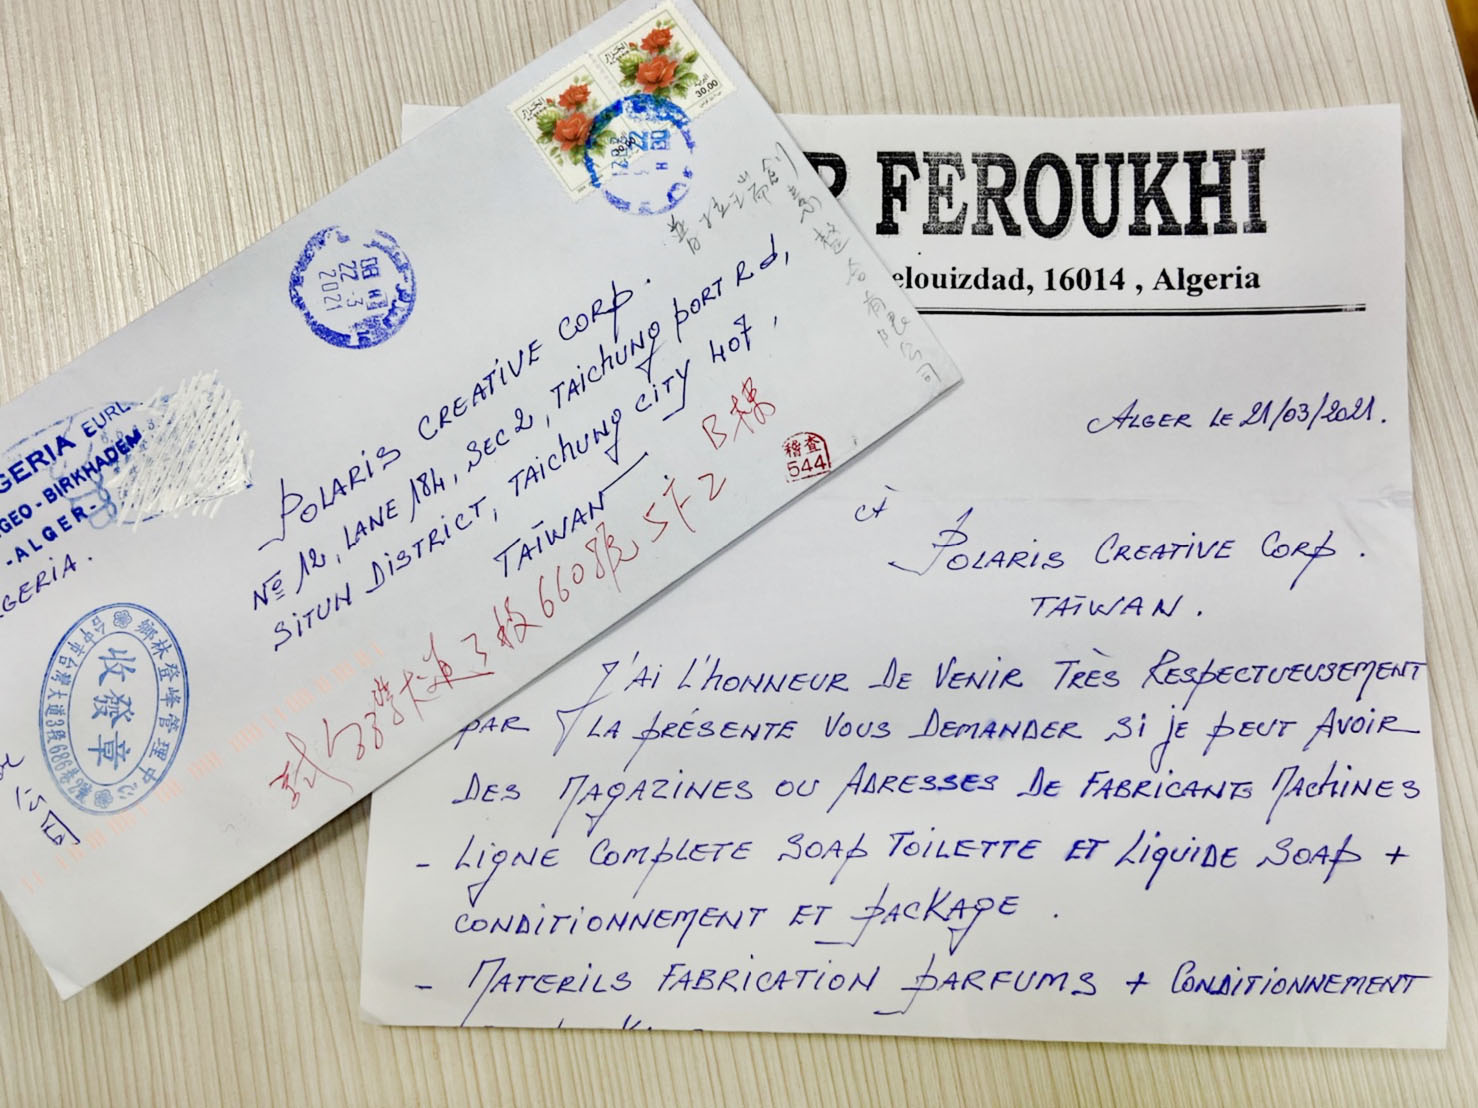 30.00
08 H
22-3
2021
POLARIS CREATIVE CORP.
Nº 12, LANE 184, SEC 2, TAICHUNG PORT Rd,
SITUN DISTRICT, TAICHUNG CITY 407,
TAÏWAN
B棟
稽查
544
GERIA EURL
GEO - BIRKHADEM
-ALGER-
GERIA.
鄉林登峰管理中心
收發章
公司
FEROUKHI
elouizdad, 16014 , Algeria
ALGER LE 21/03/2021.
À
POLARIS CREATIVE CORP.
TAÏWAN.
J'AI L'HONNEUR DE VENIR TRÈS RESPECTUEUSEMENT
PAR LA PRÉSENTE VOUS DEMANDER SI JE PEUT AVOIR
DES MAGAZINES OU ADRESSES DE FABRICANTS MACHINES
- LIGNE COMPLETE SOAP TOILETTE ET LIQUIDE SOAP +
CONDITIONNEMENT ET PACKAGE.
- MATERILS FABRICATION PARFUMS + CONDITIONNEMENT